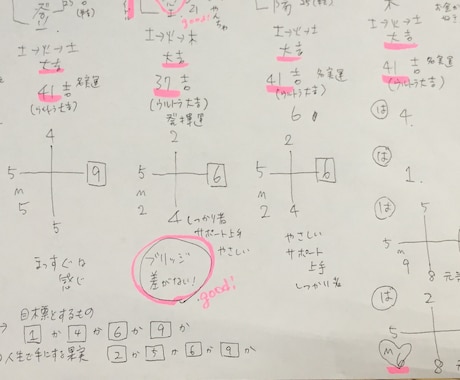 21
good!
土→火→土
大吉
41吉 名実運
(ウルトラ大吉)
土→火→木
大吉
37吉
(ウルトラ大吉)
発揮運
大吉
41吉 名実運
(ウルトラ大吉)
6
大吉
41吉
(ウルトラ大吉)
は 4.
は 1.
4
5 9
m
5 5
まっすぐな
感じ
2
5 6
m
2 4 しっかり者
サポート上手
やさしい
ブリッジ
差がない!
good!
2
5 6
m
2 4
やさしい
サポート
上手
しっかり者
は
5
m
9 8 元
は
2
5
m 6
8 元
目標とするもの
→ 1 か 4 か 6 か 9 か
人生で手にする果実 2 か 5 か 6 か 9 か